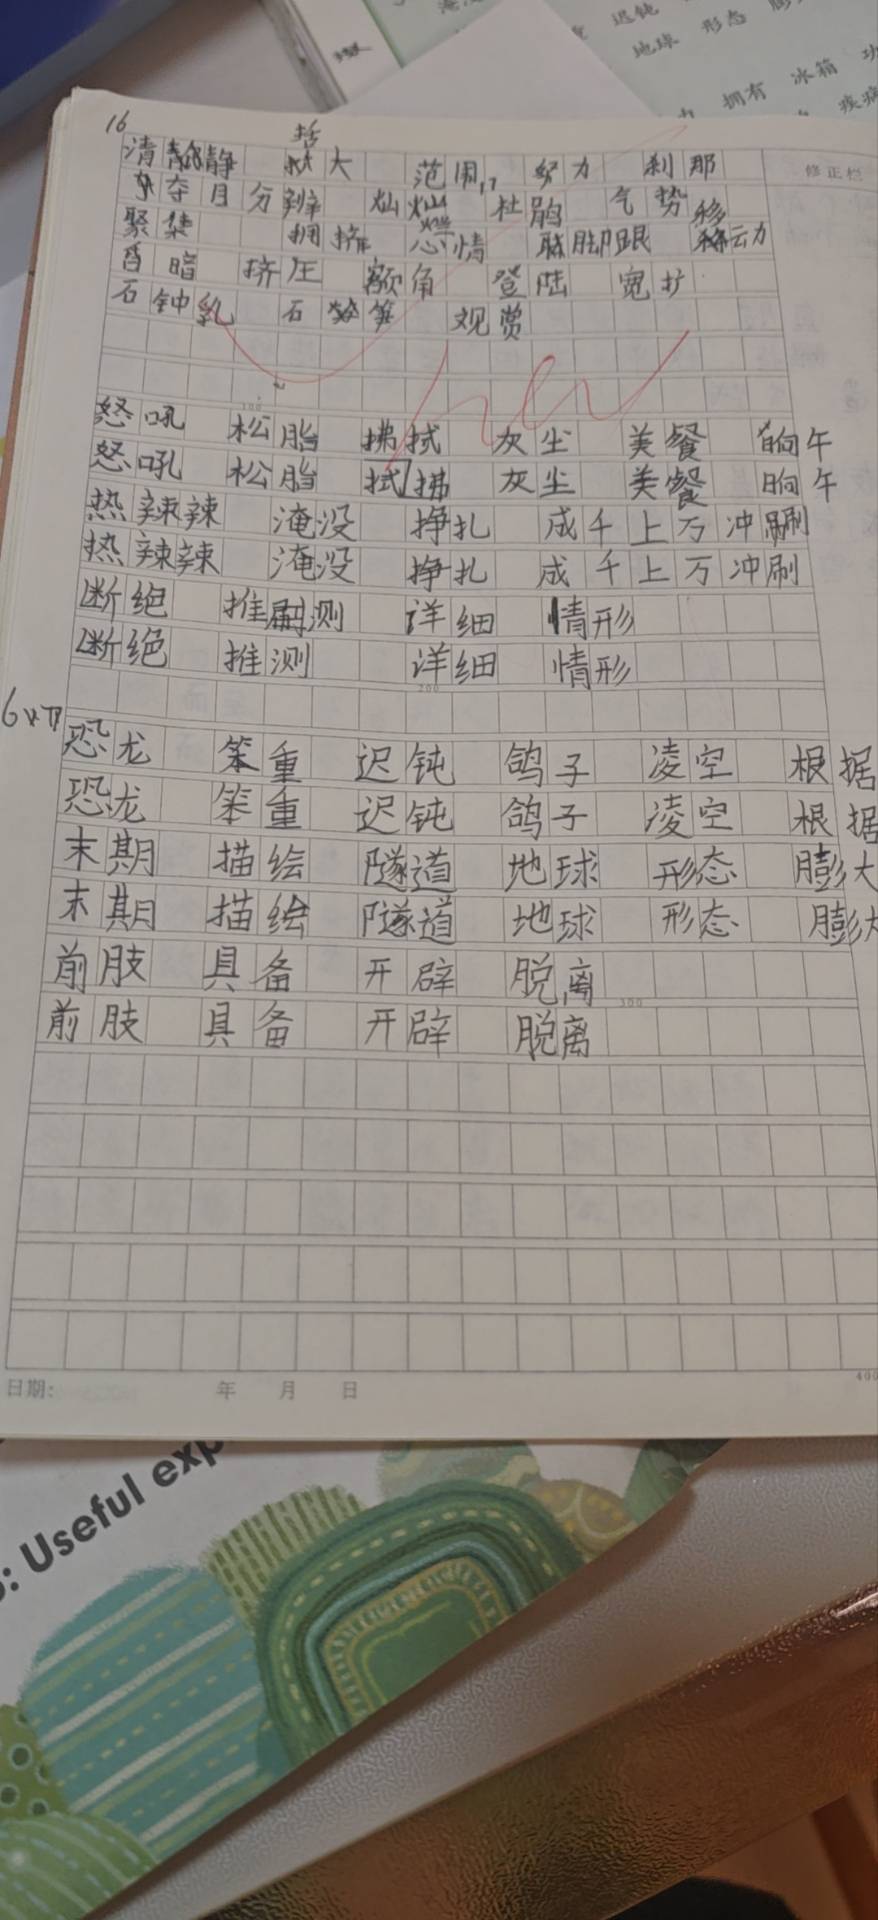 迟钝
地球 形态
拥有 冰箱
疾病
16
清 静 大 范围 努力 刹那
夺目 分辨 灿烂 杜鹃 气势 移
聚集 拥挤 情 脚跟 移动
昏暗 挤压 额角 登陆 宽扩
石钟乳 石笋 观赏
修正栏
怒吼 松脂 拂拭 灰尘 美餐 晌午
怒吼 松脂 拭拂 灰尘 美餐 晌午
热辣辣 淹没 挣扎 成千上万 冲刷
热辣辣 淹没 挣扎 成千上万 冲刷
断绝 推测 详细 情形
断绝 推测 详细 情形
200
恐龙 笨重 迟钝 鸽子 凌空 根据
恐龙 笨重 迟钝 鸽子 凌空 根据
末期 描绘 隧道 地球 形态 膨大
末期 描绘 隧道 地球 形态 膨大
前肢 具备 开辟 脱离
300
前肢 具备 开辟 脱离
400
日期: 年 月 日
: Useful exp